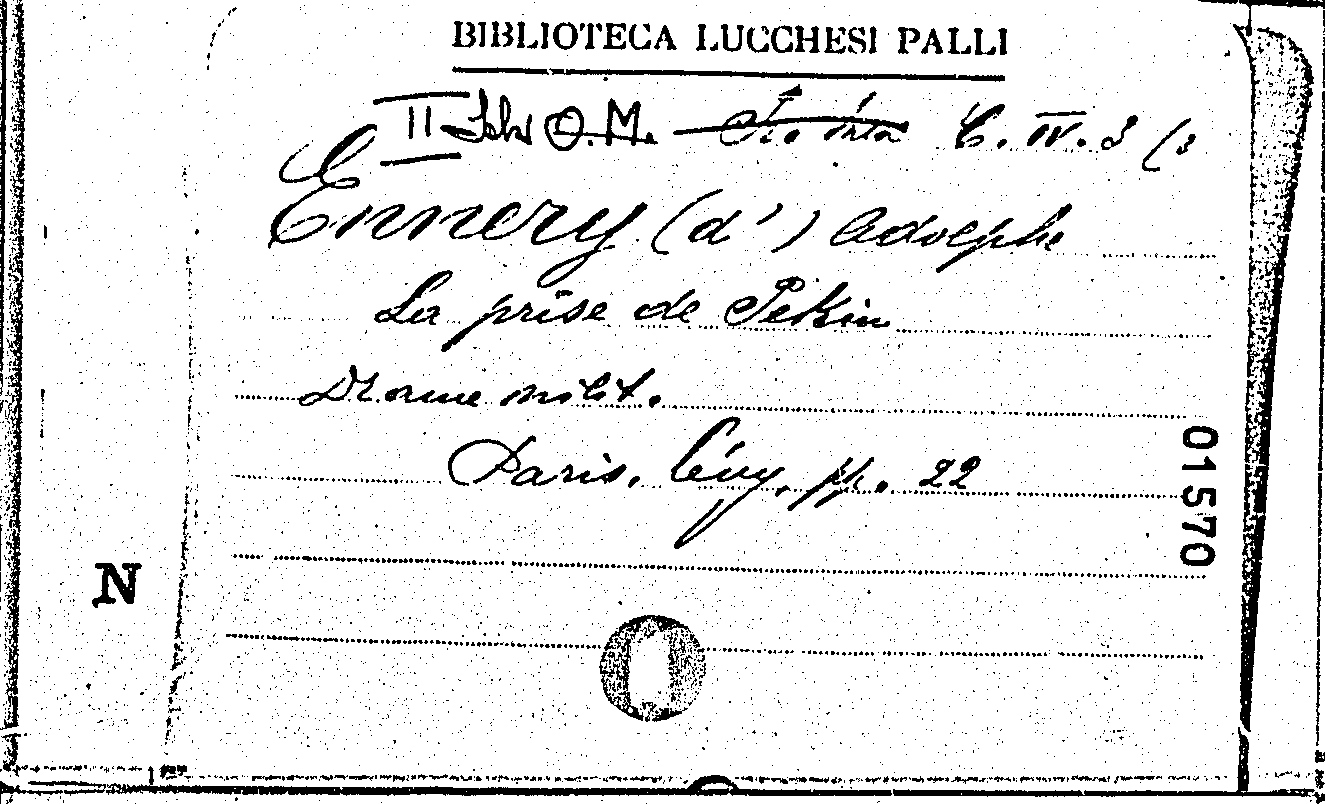 BIBLIOTECA LUCCHESI PALLI
II O. M. C. IV. 3 (3
Ennery (d') Adolphe
La prise de Pékin
Drame milit.
Paris, Lévy, pp. 22
01570
N